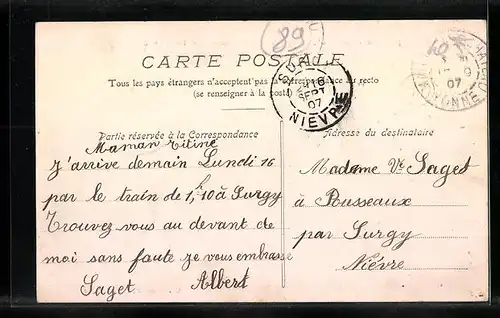 (89)
CARTE POSTALE
Tous les pays étrangers n'acceptent pas la correspondance au recto
(se renseigner à la poste)
SURGY
16
SEPT
07
NIÈVRE
9
07
YONNE
Partie réservée à la Correspondance
Adresse du destinataire
Maman Titine
J'arrive demain Lundi 16
par le train de 1,h10 à Surgy
Trouvez vous au devant de
moi sans faute je vous embrasse
Saget Albert
Madame Ve Saget
à Pousseaux
par Surgy
Nièvre